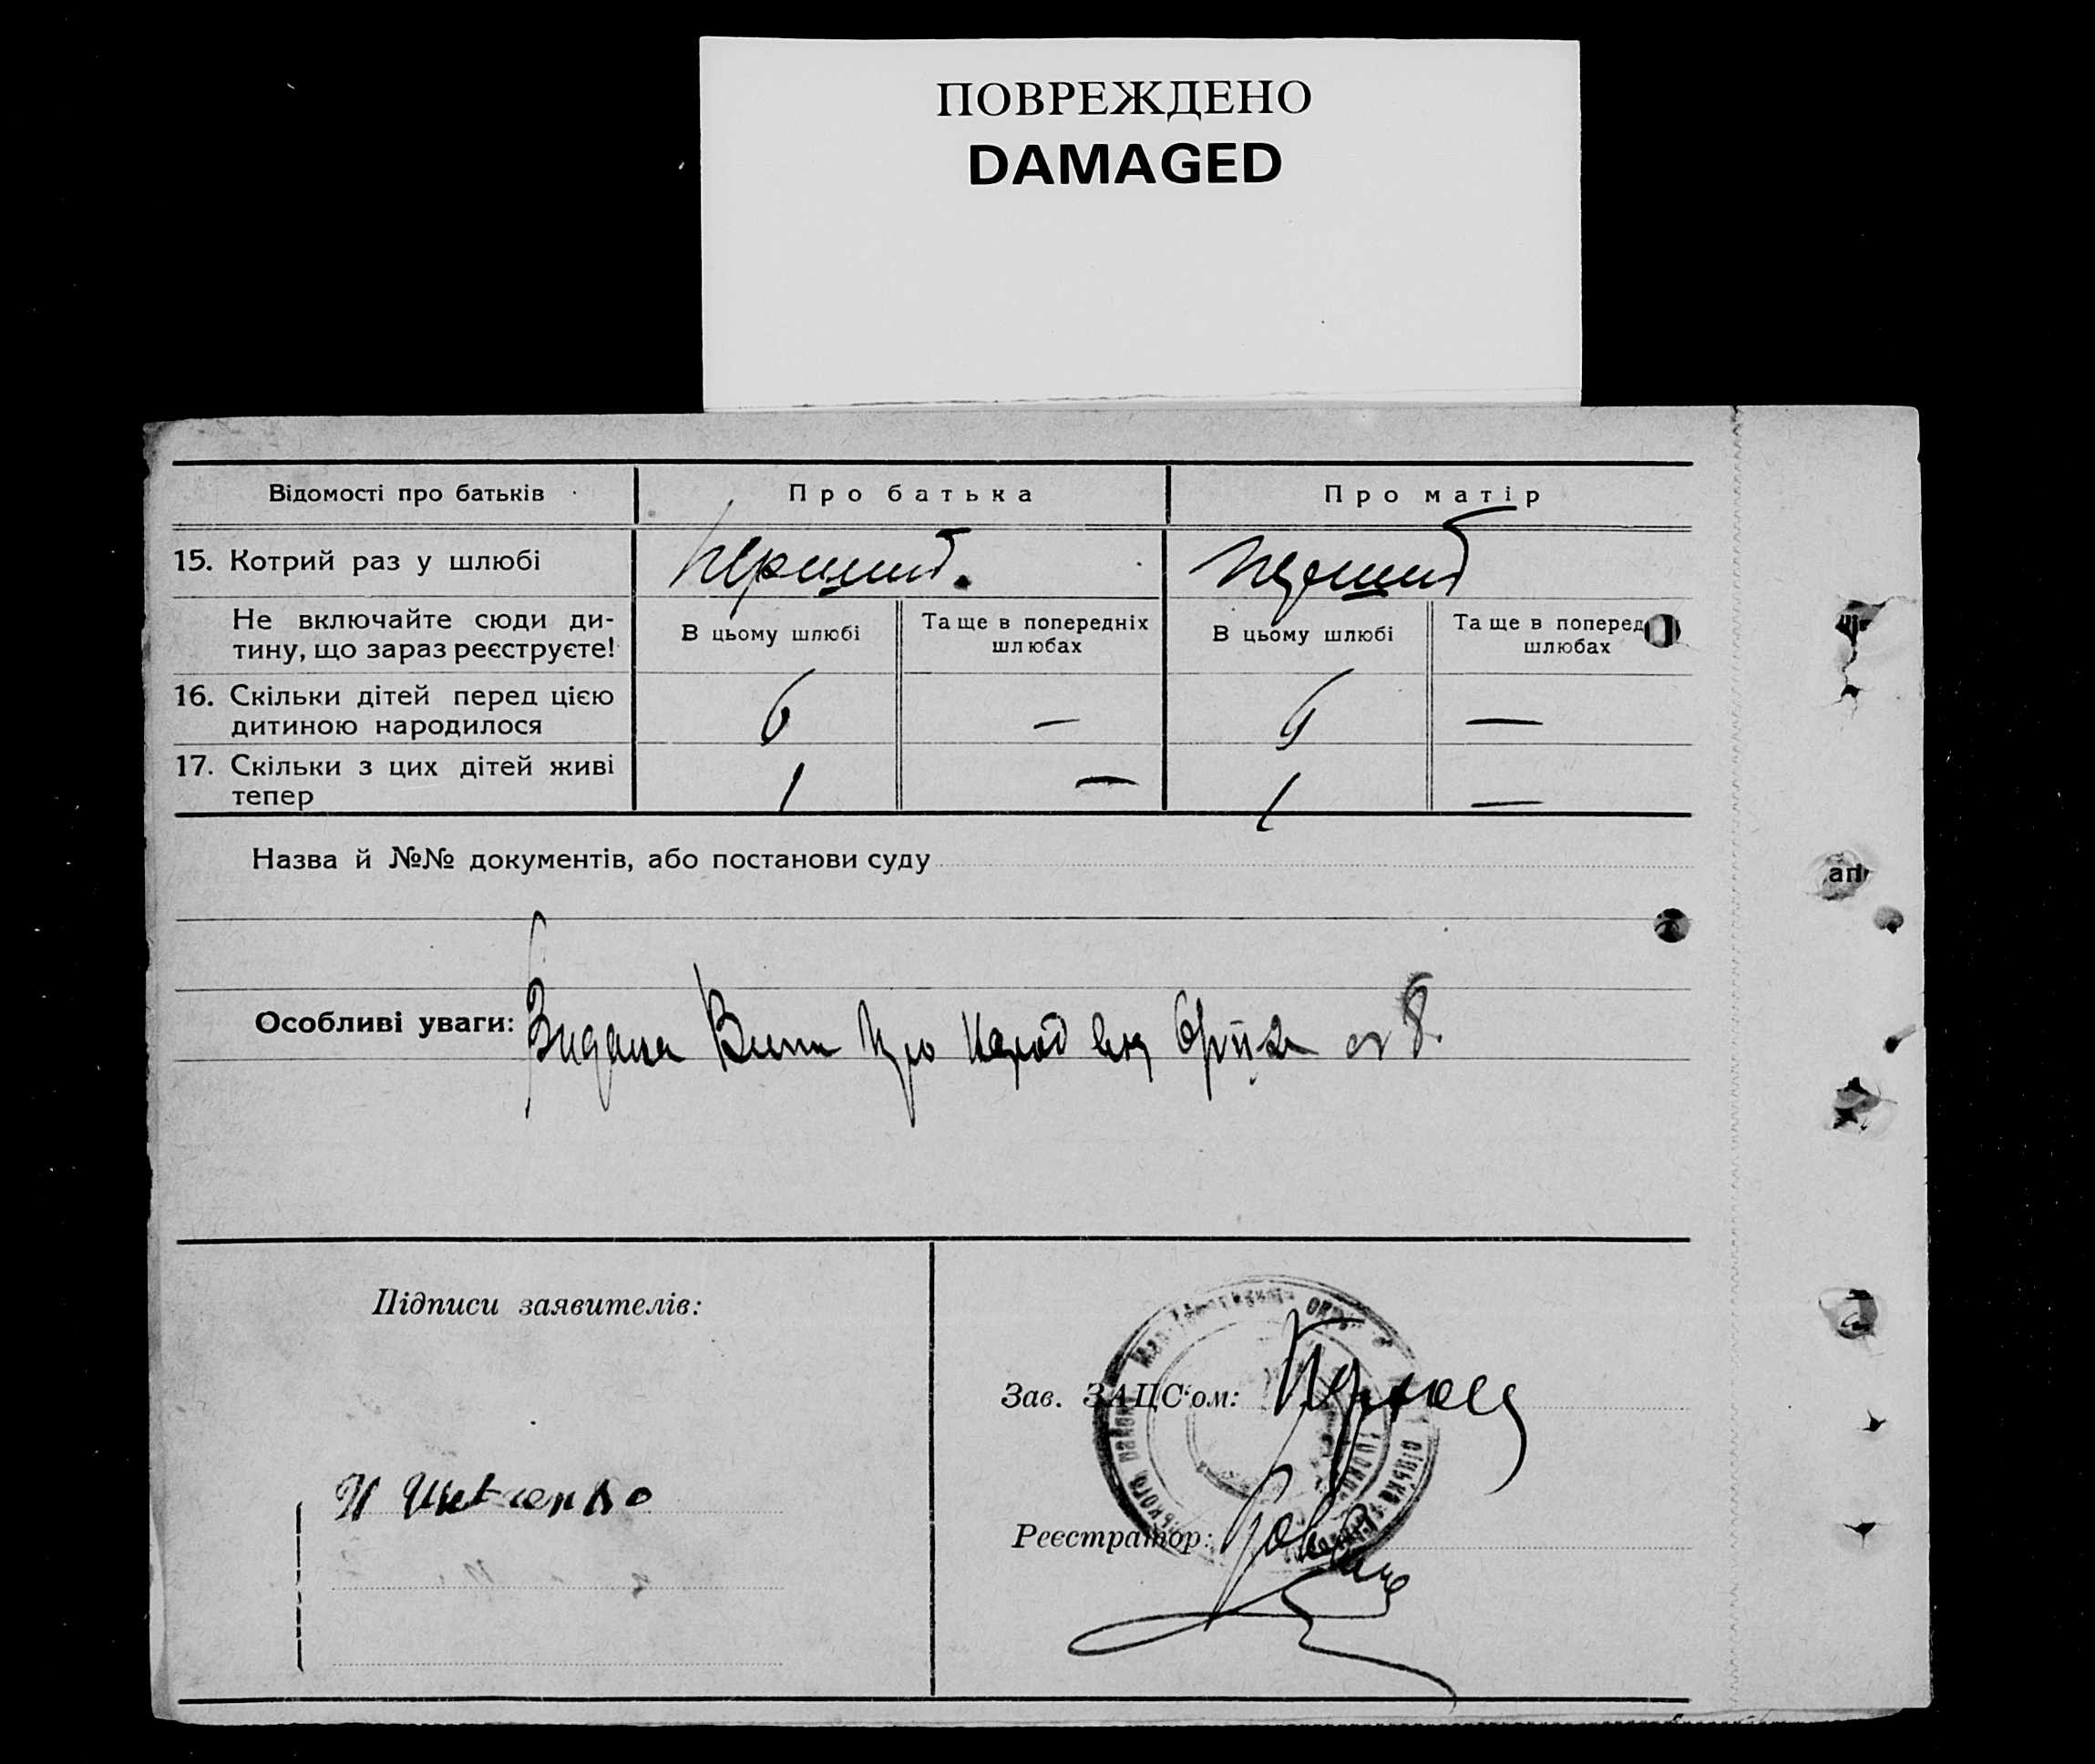 ПОВРЕЖДЕНО
DAMAGED
Відомості про батьків
Про батька
Про матір
15. Котрий раз у шлюбі
перший.
перший
Не включайте сюди ди-
тину, що зараз реєструєте!
В цьому шлюбі
Та ще в попередніх
шлюбах
В цьому шлюбі
Та ще в поперед
шлюбах
16. Скільки дітей перед цією
дитиною народилося
6
—
6
—
17. Скільки з цих дітей живі
тепер
1
—
1
—
Назва й №№ документів, або постанови суду
Особливі уваги: Видана Випи про народ
Підписи заявителів:
Зав. ЗАЦС'ом:
Шевченко
Реєстратор: